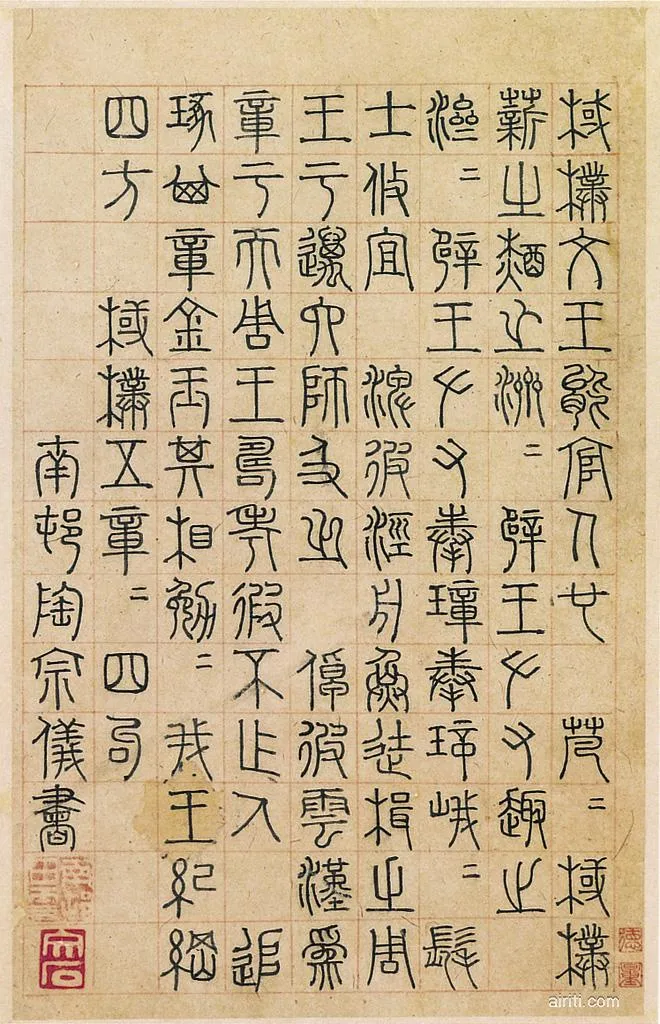 棫樸文王能官人也 芃〻棫樸
薪之槱之濟〻辟王左右趣之
濟〻辟王左右奉璋奉璋峨〻髦
士攸宜 淠彼涇舟烝徒楫之周
王于邁六師及之 倬彼雲漢爲
章于天周王壽考遐不作人 追
琢其章金玉其相勉〻我王紀綱
四方 棫樸五章〻四句
南邨陶宗儀書
airiti.com